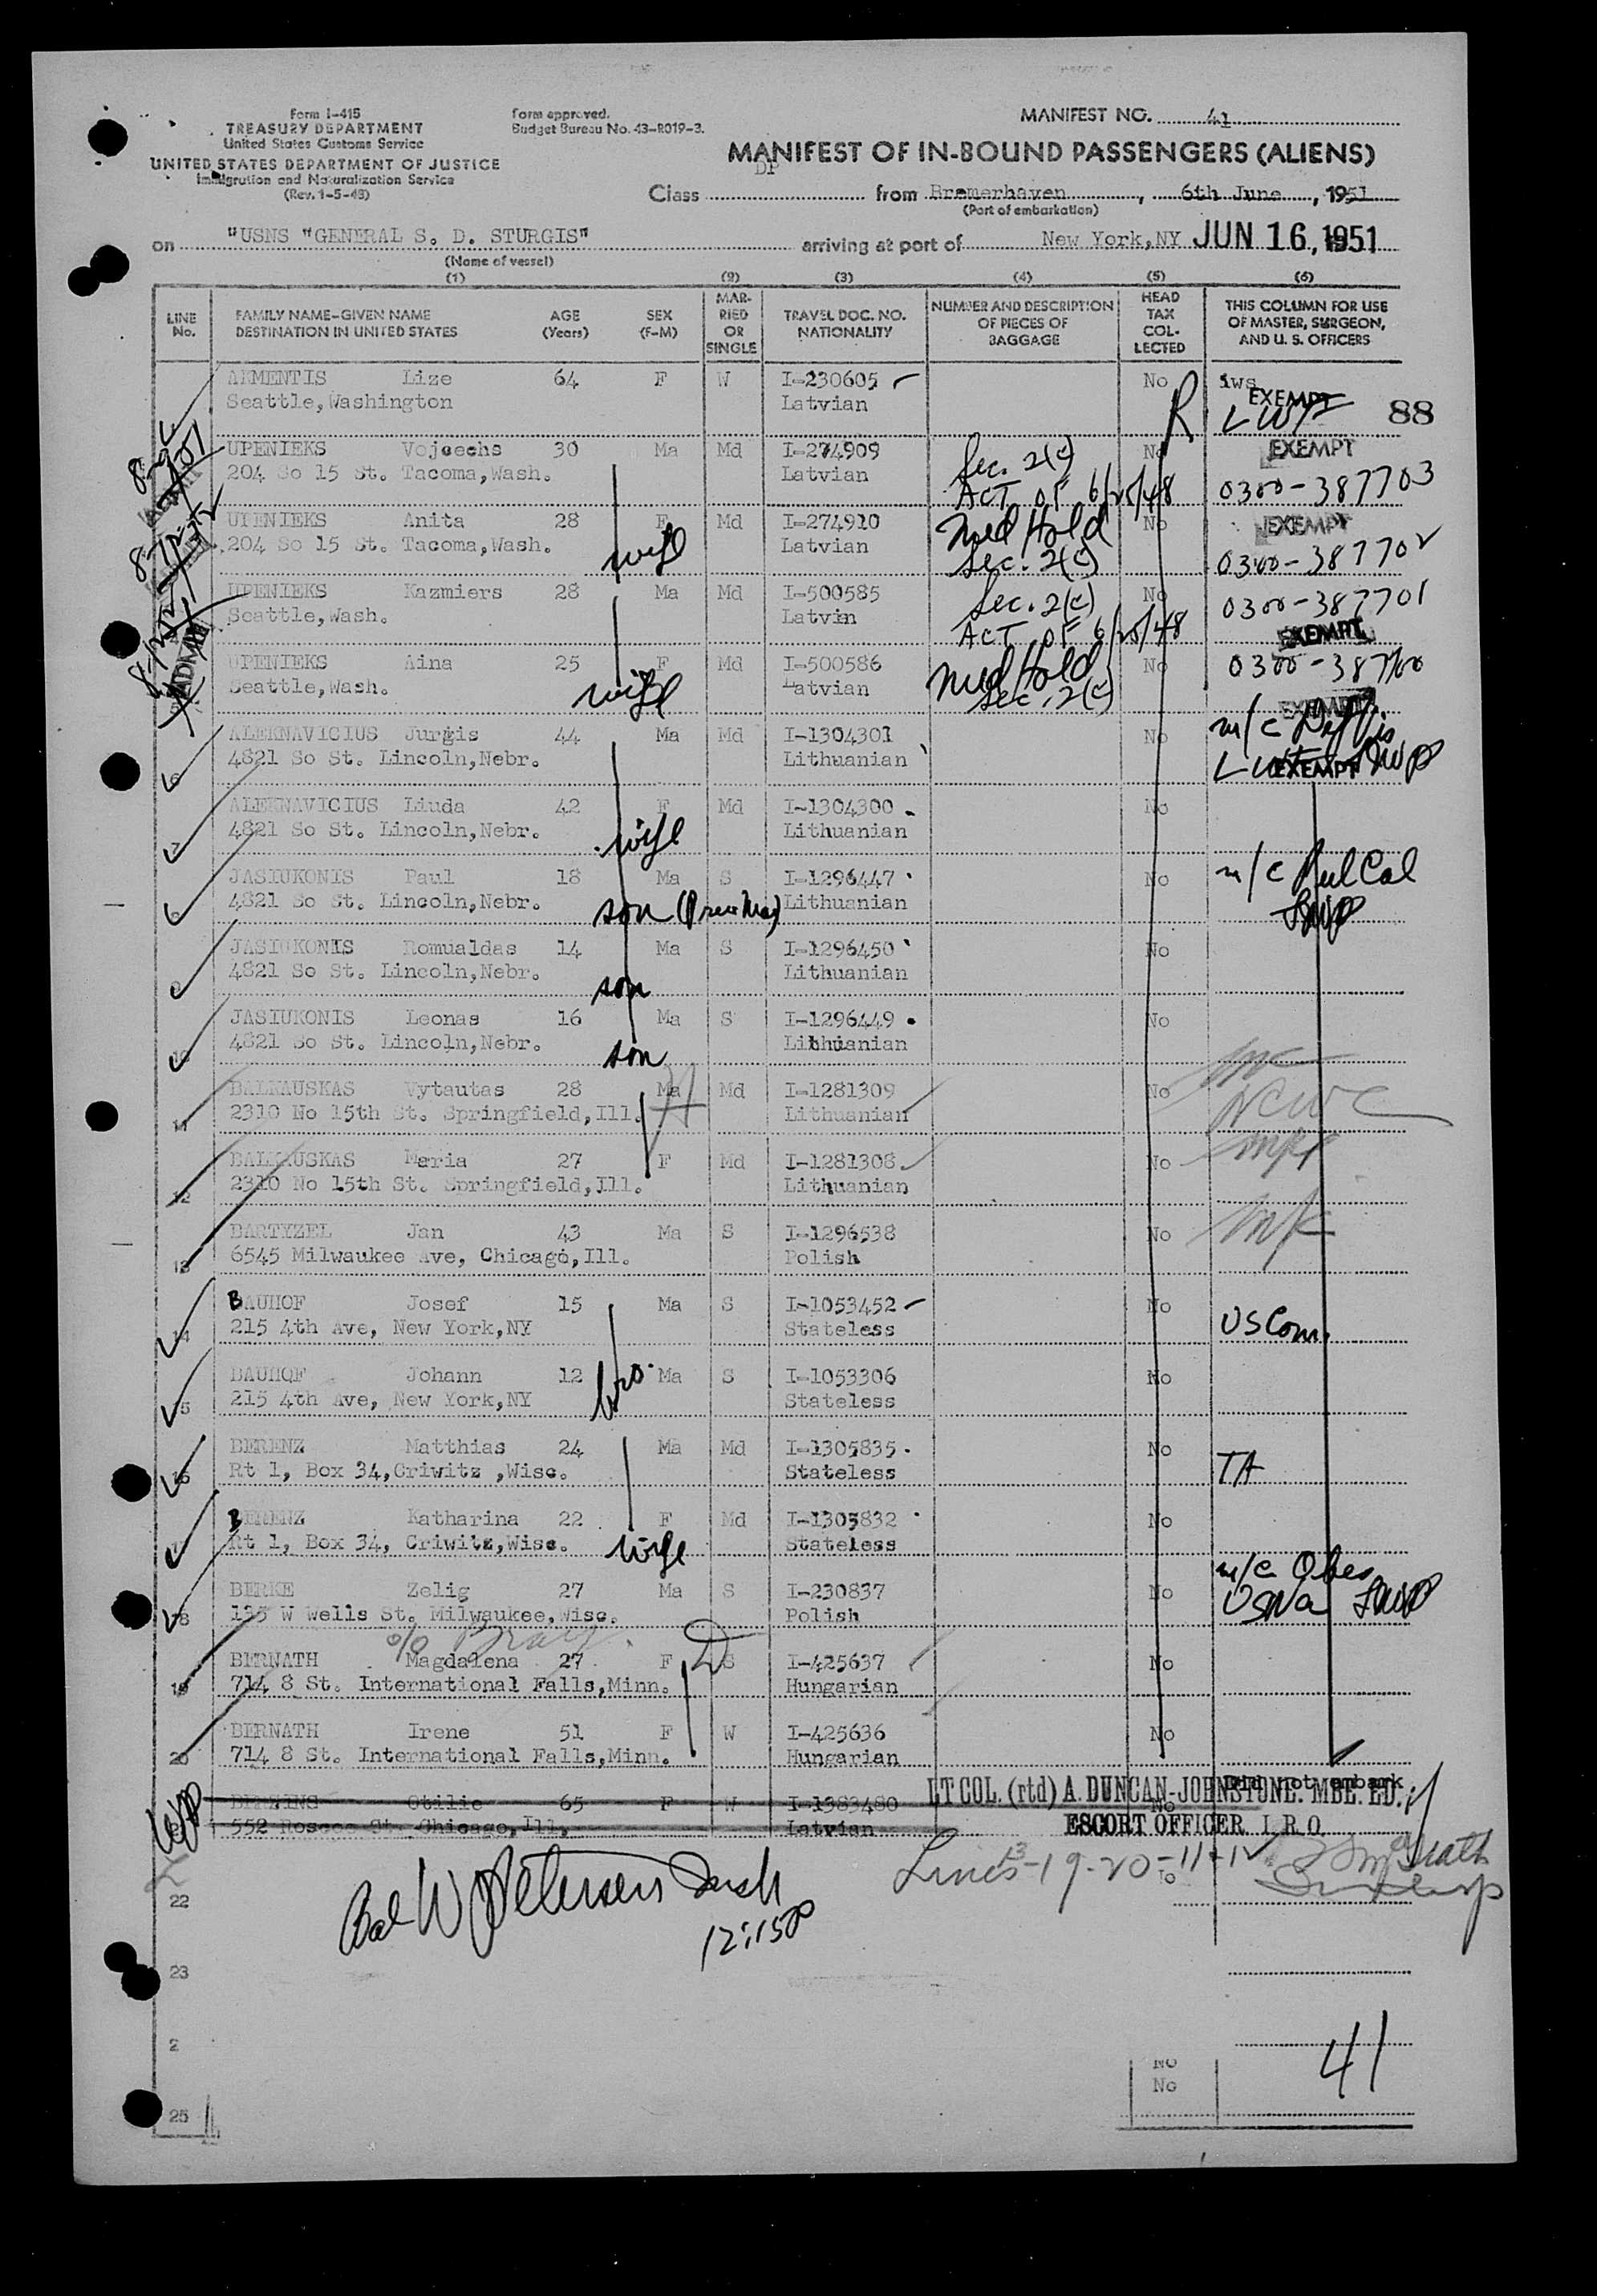 Form I-415
TREASURY DEPARTMENT
United States Customs Service
UNITED STATES DEPARTMENT OF JUSTICE
Immigration and Naturalization Service
(Rev. 1-5-48)
Form approved.
Budget Bureau No. 43-R019-3.
MANIFEST NO. 41
MANIFEST OF IN-BOUND PASSENGERS (ALIENS)
Class DP from Bremerhaven, 6th June, 1951
(Port of embarkation)
on "USNS "GENERAL S. D. STURGIS" arriving at port of New York,NY JUN 16, 1951
(Name of vessel)
(1) (2) (3) (4) (5) (6)
LINE No. FAMILY NAME-GIVEN NAME DESTINATION IN UNITED STATES AGE (Years) SEX (F-M) MARRIED OR SINGLE TRAVEL DOC. NO. NATIONALITY NUMBER AND DESCRIPTION OF PIECES OF BAGGAGE HEAD TAX COLLECTED THIS COLUMN FOR USE OF MASTER, SURGEON, AND U. S. OFFICERS
ARMENTIS Lize 64 F W I-230605 No iws EXEMPT
Seattle,Washington Latvian R 88
UPENIEKS Vojcechs 30 Ma Md I-274909 Sec. 2(c) No EXEMPT
204 So 15 St. Tacoma,Wash. Latvian ACT OF 6/25/48 0300-387703
UPENIEKS Anita 28 F Md I-274910 Med Hold No EXEMPT
204 So 15 St. Tacoma,Wash. wife Latvian Sec. 2(c) 0300-387702
UPENIEKS Kazmiers 28 Ma Md I-500585 Sec. 2(c) No 0300-387701
Seattle,Wash. Latvin ACT OF 6/25/48 EXEMPT
UPENIEKS Aina 25 F Md I-500586 Med Hold No 0300-387700
Seattle,Wash. wife Latvian Sec. 2(c) EXEMPT
ALEKNAVICIUS Jurgis 44 Ma Md I-1304301 No m/c
6 4821 So St. Lincoln,Nebr. Lithuanian EXEMPT
ALEKNAVICIUS Liuda 42 F Md I-1304300 No
7 4821 So St. Lincoln,Nebr. wife Lithuanian
JASIUKONIS Paul 18 Ma S I-1296447 No m/c Pul Cal
4821 So St. Lincoln,Nebr. son Lithuanian
JASIUKONIS Romualdas 14 Ma S I-1296450 No
4821 So St. Lincoln,Nebr. son Lithuanian
JASIUKONIS Leonas 16 Ma S I-1296449 No
10 4821 So St. Lincoln,Nebr. son Lithuanian
BALKAUSKAS Vytautas 28 Ma Md I-1281309 No
11 2310 No 15th St. Springfield,Ill. Lithuanian NCWC
BALKAUSKAS Maria 27 F Md I-1281308 No
12 2310 No 15th St. Springfield,Ill. Lithuanian
BARTYZEL Jan 43 Ma S I-1296538 No m/c
13 6545 Milwaukee Ave, Chicago,Ill. Polish
BAUHOF Josef 15 Ma S I-1053452 No
14 215 4th Ave, New York,NY Stateless US Com.
BAUHOF Johann 12 bro. Ma S I-1053306 No
15 215 4th Ave, New York,NY Stateless
BERENZ Matthias 24 Ma Md I-1305835 No
16 Rt 1, Box 34,Criwitz ,Wisc. Stateless TA
BERENZ Katharina 22 F Md I-1305832 No
17 Rt 1, Box 34, Criwitz,Wisc. wife Stateless
BERKE Zelig 27 Ma S I-230837 No m/c Obes
18 135 W Wells St. Milwaukee,Wisc. Polish USNa
BERNATH Magdalena 27 F S I-425637 No
19 714 8 St. International Falls,Minn. Hungarian
BERNATH Irene 51 F W I-425636 No
20 714 8 St. International Falls,Minn. Hungarian
BERZINS Otilie 65 F W I-1383480 No Did not embark
552 Roscoe St. Chicago,Ill, Latvian
LT COL. (rtd) A. DUNCAN-JOHNSTONE. MBE. ED.
ESCORT OFFICER. I. R. O.
Lines 13-19-20-11+12
22
12:15P
23
2
41
No
No
25